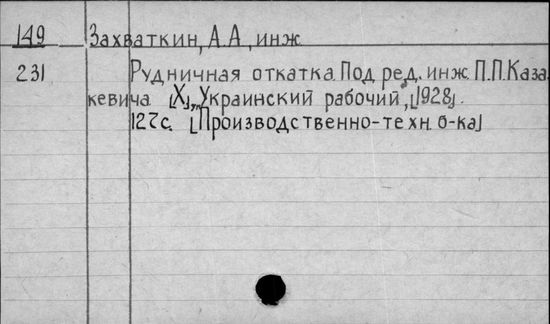 149 Захваткин, А.А, инж.
231 Рудничная откатка. Под ред. инж. П.П. Каза-
кевича. [Х], „Украинский рабочий", [1928].
127с. [Производственно-техн. б-ка]